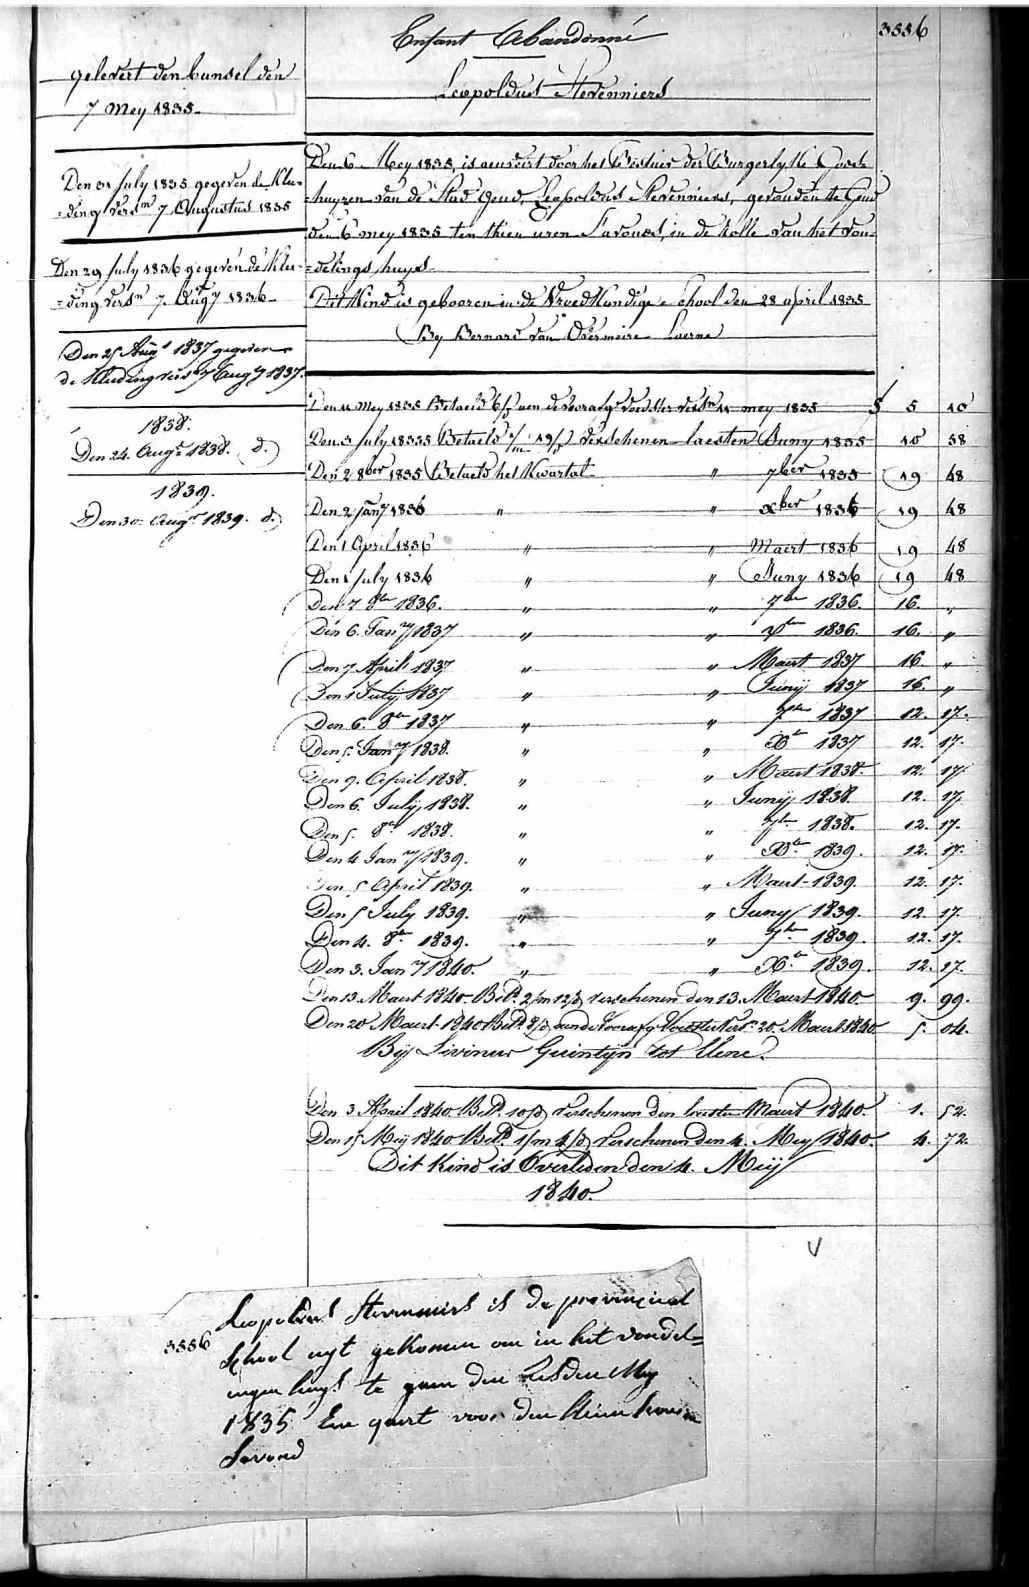 Enfant Abandonné
3556
Leopoldus Stevenniers
gelevert den bunsel den
7 Mey 1835
Den 31 July 1835 gegeven de Klee-
=ding vers.n 7 Augustus 1835
Den 29 July 1836 gegeven de Klee-
=ding vers.n 7 Aug 1836
Den 25 Aug.t 1837 gegeven
de Kleeding vers.n 7 Aug 1837.
1838.
Den 24. Aug.t 1838. d.o
1839.
Den 30. Aug.t 1839. d.o
Den 6 Mey 1835, is aenveirt door het Bestuer der Burgerlyke Gods-
=huyzen van de Stad Gend, Leopoldus Stevenniers, gevonden te Gend
den 6 mey 1835 ten thien uren Savonds, in de Rolle van het von-
=delings huys
Dit Kind is gebooren in de Vroedkundige School den 28 april 1835
By Bernard van Overmeire Laerne
Den 11 Mey 1835 Betaeld aen de voorafg. voedster vers.n 11 mey 1835 5 10
Den 3 July 1835 Betaeld verschenen laesten Juny 1835 10 58
Den 2 8ber 1835 Betaeld het Kwartal " 7ber 1835 19 48
Den 2 Jan.y 1836 " " xber 1836 19 48
Den 1 April 1836 " " Maert 1836 19 48
Den 1 July 1836 " " Juny 1836 19 48
Den 7 8er 1836. " " 7er 1836. 16. "
Den 6. Jan.y 1837 " " Xer 1836. 16. "
Den 7 April 1837 " " Maert 1837 16 "
Den 1 July 1837 " " Junij 1837 16. "
Den 6. 8er 1837 " " 7er 1837 12. 17.
Den 5. Jan.y 1838. " " Xer 1837 12. 17.
Den 9. April 1838. " " Maert 1838. 12. 17.
Den 6. July 1838. " " Junij 1838. 12. 17.
Den 5. 8er 1838. " " 7er 1838. 12. 17.
Den 4 Jan.y 1839. " " Xer 1839. 12. 17.
Den 5 April 1839. " " Maert 1839. 12. 17.
Den 5 July 1839. " " Juny 1839. 12. 17.
Den 4. 8er 1839. " " 7er 1839. 12. 17.
Den 3. Jan.y 1840. " " Xer 1839. 12. 17.
Den 13. Maert 1840. Bet.d 2/m 12/d verschenen den 13. Maert 1840. 9. 99.
Den 20 Maert 1840 Bet.d 8/d aen de voorafg. voedster vers.n 20. Maert 1840. 5. 04.
Bij Livinus Quintijn tot Elene.
Den 3 April 1840. Bet.d 10/d verschenen den laesten Maert 1840. 1. 52.
Den 15 Meij 1840 Bet.d 1/m 4/d verschenen den 4. Mey 1840. 4. 72.
Dit Kind is Overleden den 4. Meij
1840.
Leopoldus Stevenniers is de provinciael
3556
School uyt gekomen om in het vondel=
ingen huys te gaen den sesden Mey
1835 Een quart voor den thien hueren
Savond